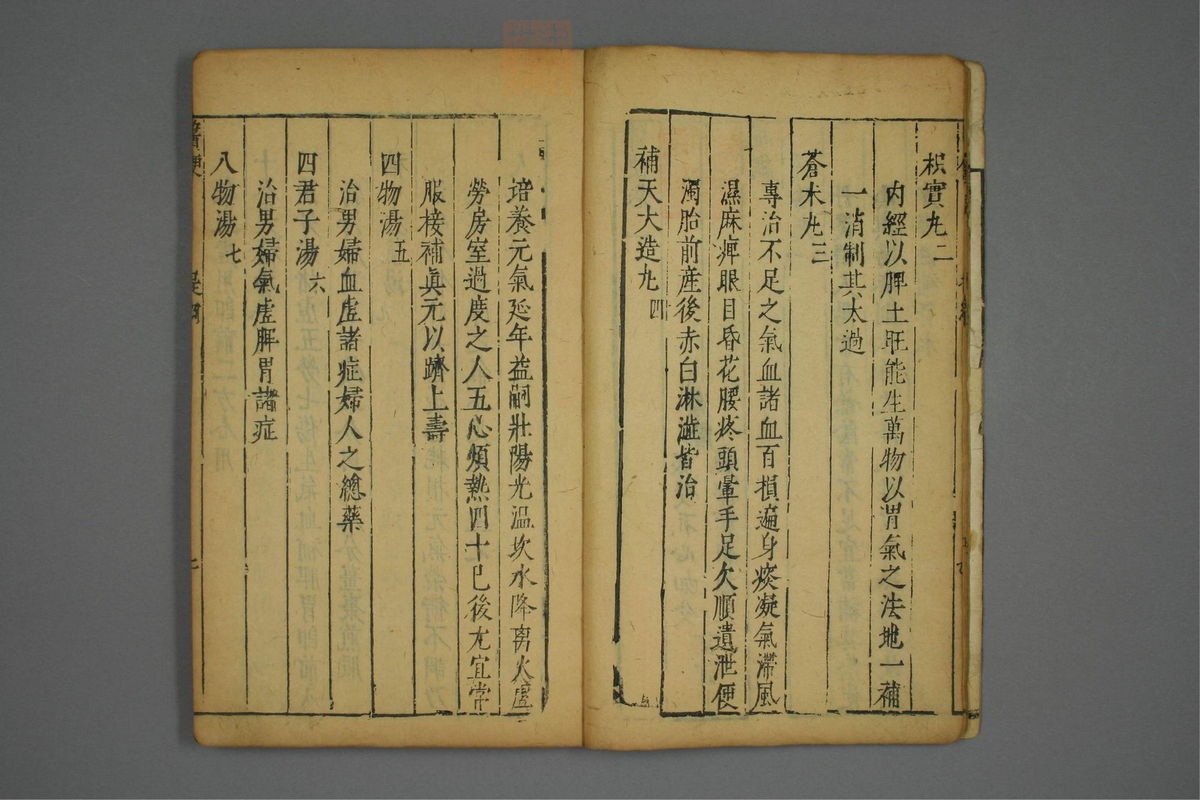 枳實丸二
內經以脾土旺能生萬物以胃氣之法地一補
一消制其太過
蒼术丸三
專治不足之氣血諸血百損遍身痰凝氣滯風
濕麻痺眼目昏花腰疼頭暈手足欠順遺泄便
濁胎前産後赤白淋澁皆治
補天大造丸四
培養元氣延年益嗣壯陽光温坎水降离火虛
勞房室過度之人五心煩熱四十已後尢宜常
服接補眞元以躋上壽
四物湯五
治男婦血虛諸症婦人之總藥
四君子湯六
治男婦氣虛脾胃諸症
八物湯七